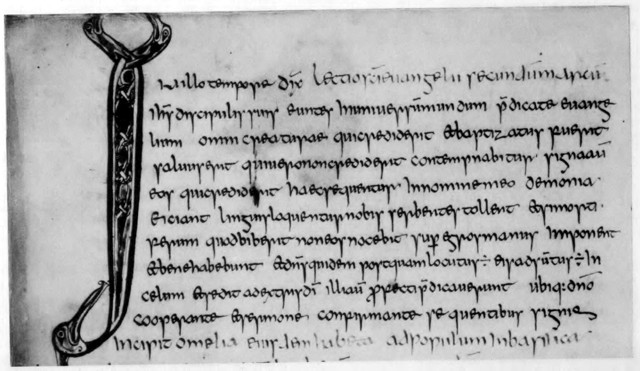 In illo tempore dix̅ Lectio sc̅i euangelii secundum marcu̅
ih̅s discipulis suis euntes In uniuersu̅ mundum p̅dicate euange
lium omni creaturae qui crediderit & baptizatus fuerit
saluus erit qui uero non crediderit contempnabitur signa au̅
eos qui crediderint haec sequentur In nomine meo demonia
eiciant linguis loquentur nobis serbentes tollent & si morti
ferum quod biberint non eos nocebit sup̅ egros manus Imponent
& bene habebunt & dn̅s quidem postquam locutus ÷ eis adsu̅tus ÷ In
celum & sedit ad extris di̅ illi au̅ profecti p̅dicauerunt ubiq: dn̅o
cooperante & sermone confirmante sequentibus signis
Incipit omelia eiusdem habeta ad populum In basilica